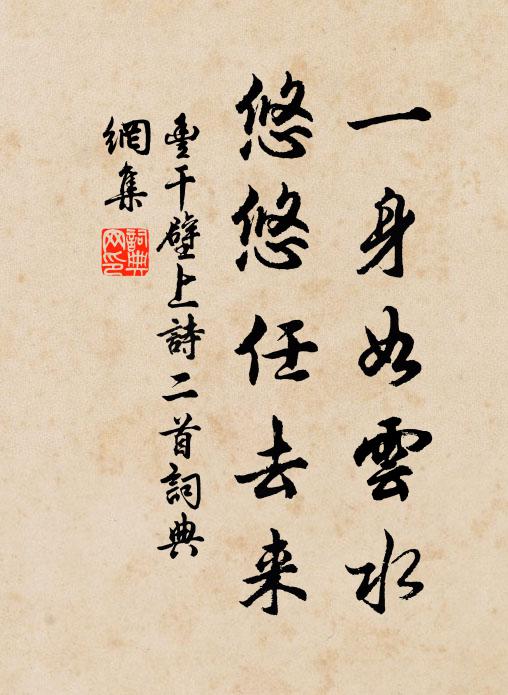 一身如雲水
悠悠任去来
豊干壁上詩二首詞典
網集
詞典網印